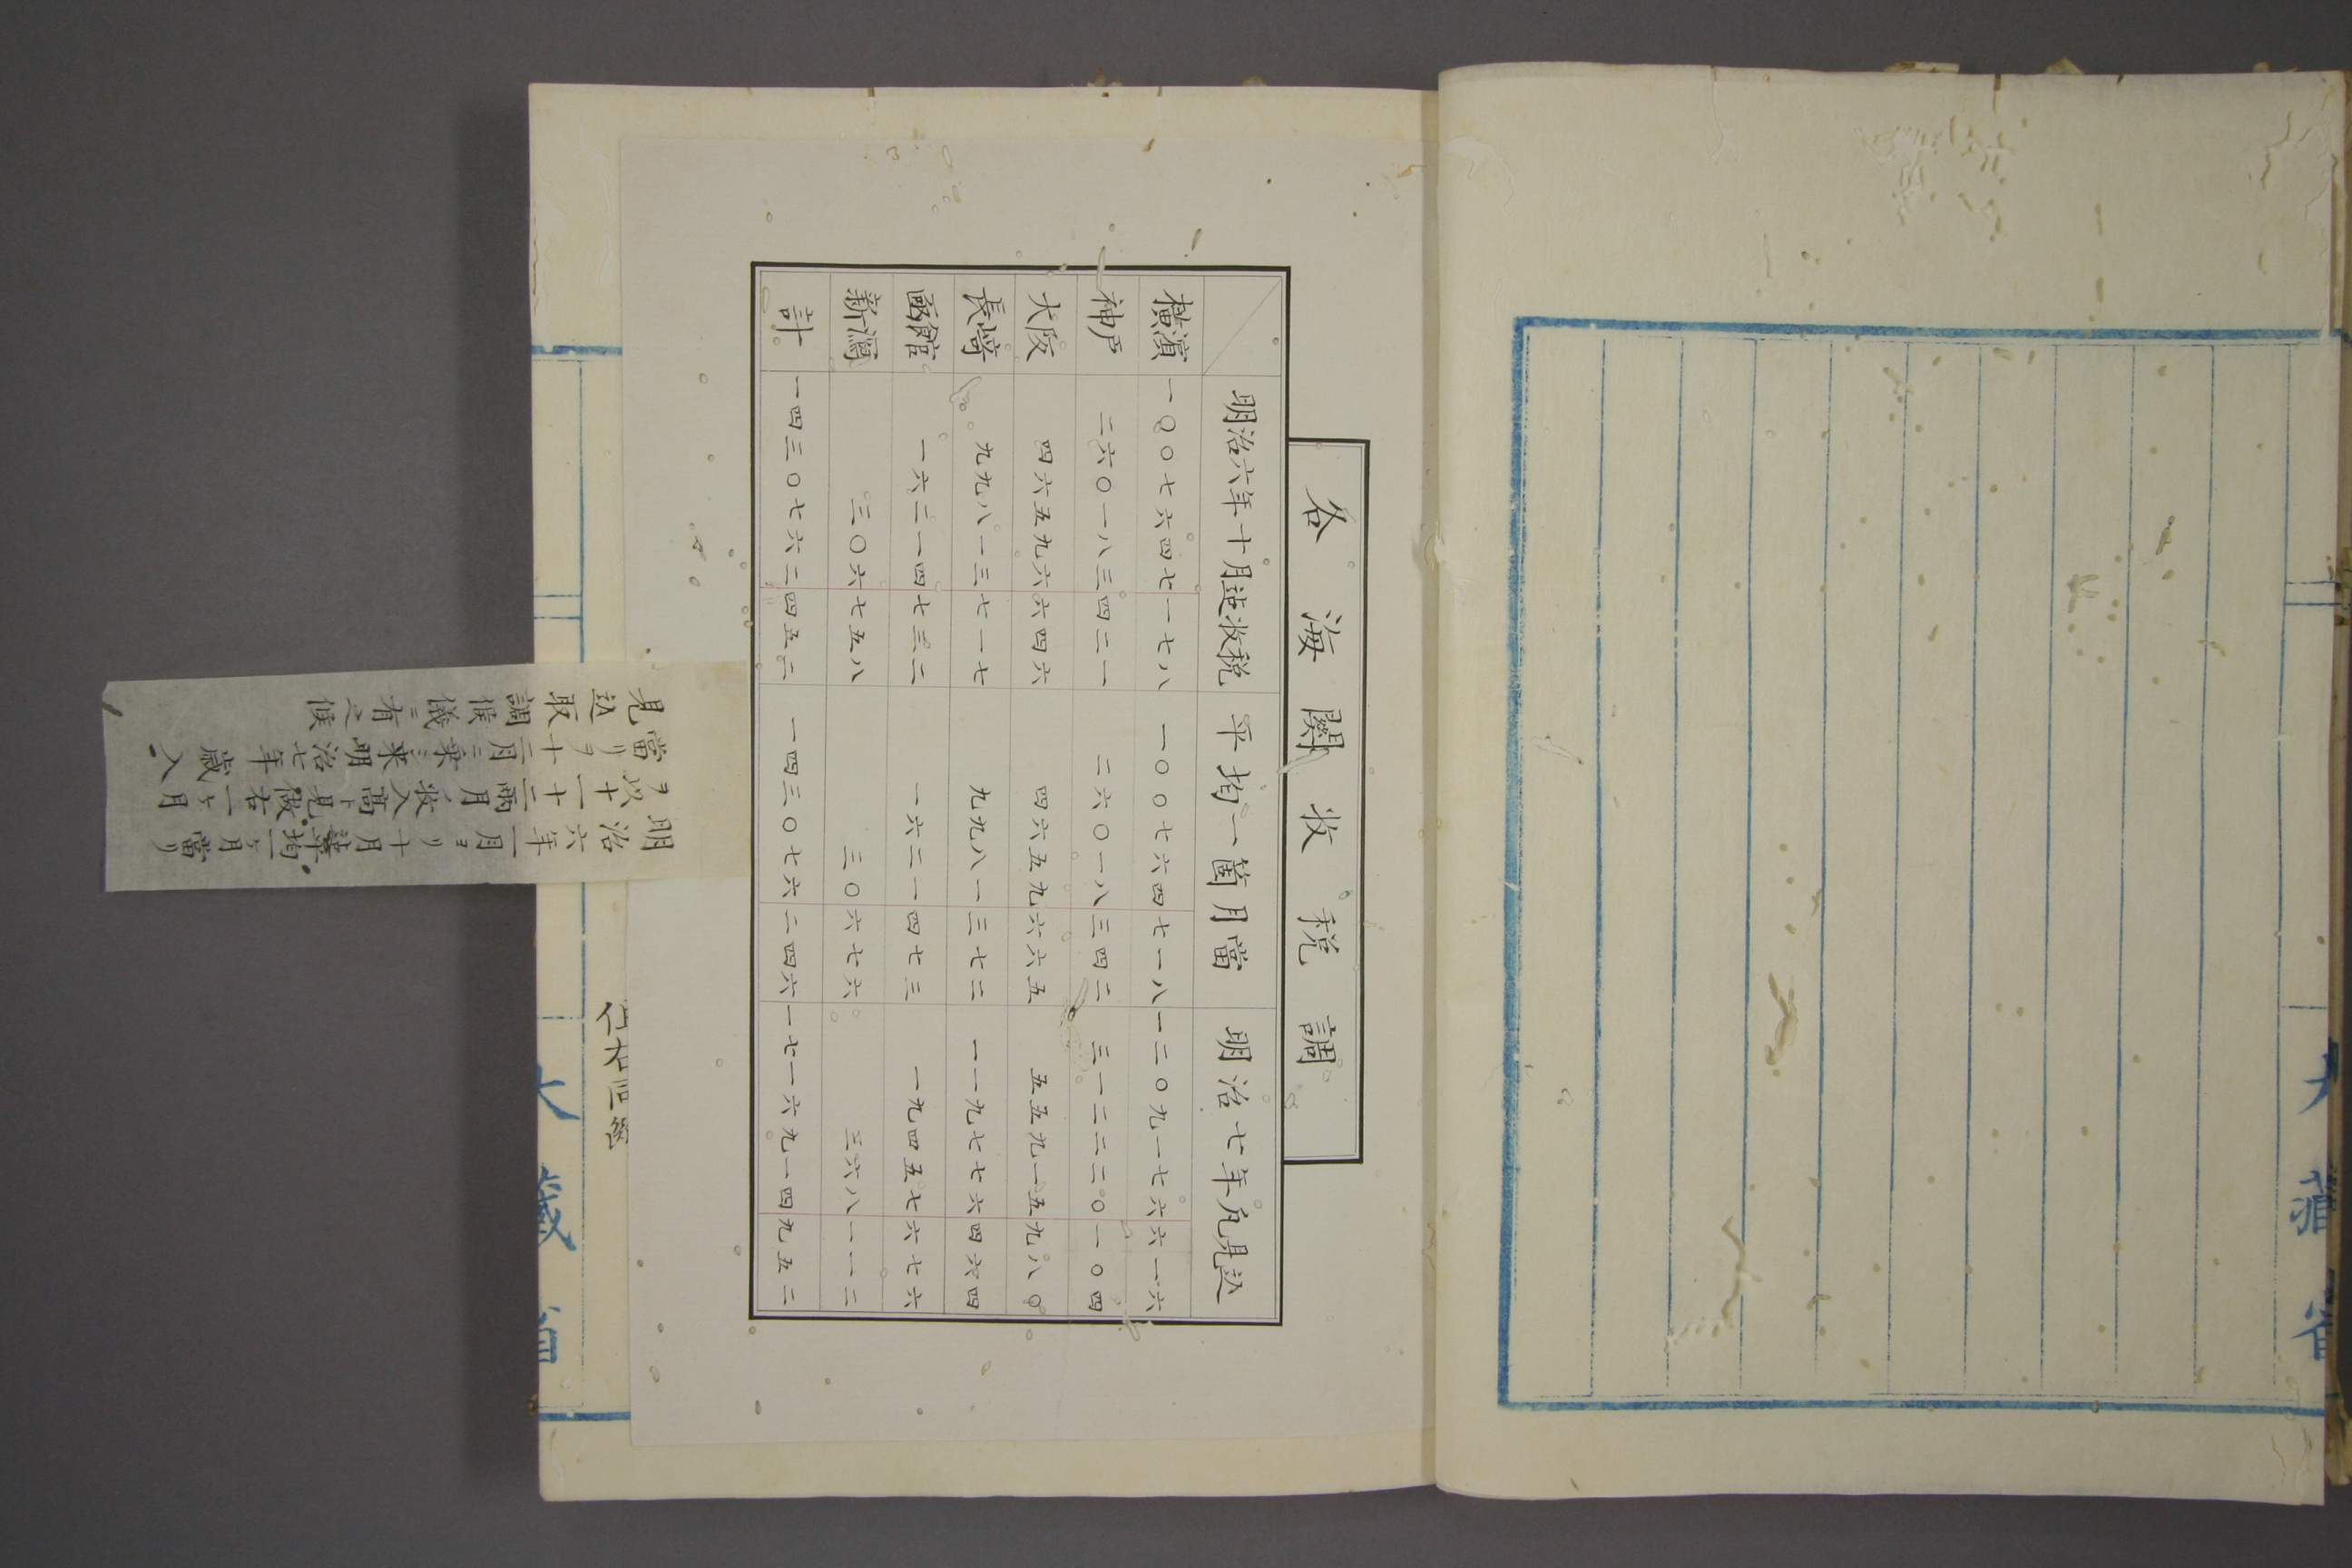 大藏省
各海關收税調
明治六年十月迄收税 平均一箇月當 明治七年凡見込
横濱 一〇〇七六四七一七八 一〇〇七六四七一八 一二〇九一七六六一六
神戸 二六〇一八三四二一 二六〇一八三四二 三一二二二〇一〇四
大阪 四六五九六六四六 四六五九六六五 五五九一五九八〇
長崎 九九八一三七一七 九九八一三七二 一一九七七六四六四
函館 一六二一四七三二 一六二一四七三 一九四五七六七六
新潟 三〇六七五八 三〇六七六 三六八一一二
計 一四三〇七六二四五二 一四三〇七六二四六 一七一六九一四九五二
明治六年一月ヨリ十月 均一ヶ月當リ
ヲ以十一十二兩月ノ收入高ト見做右一ヶ月
當リヲ十二月ニ乗シ来明治七年歳入
見込取調候儀ニ有之候
大藏省